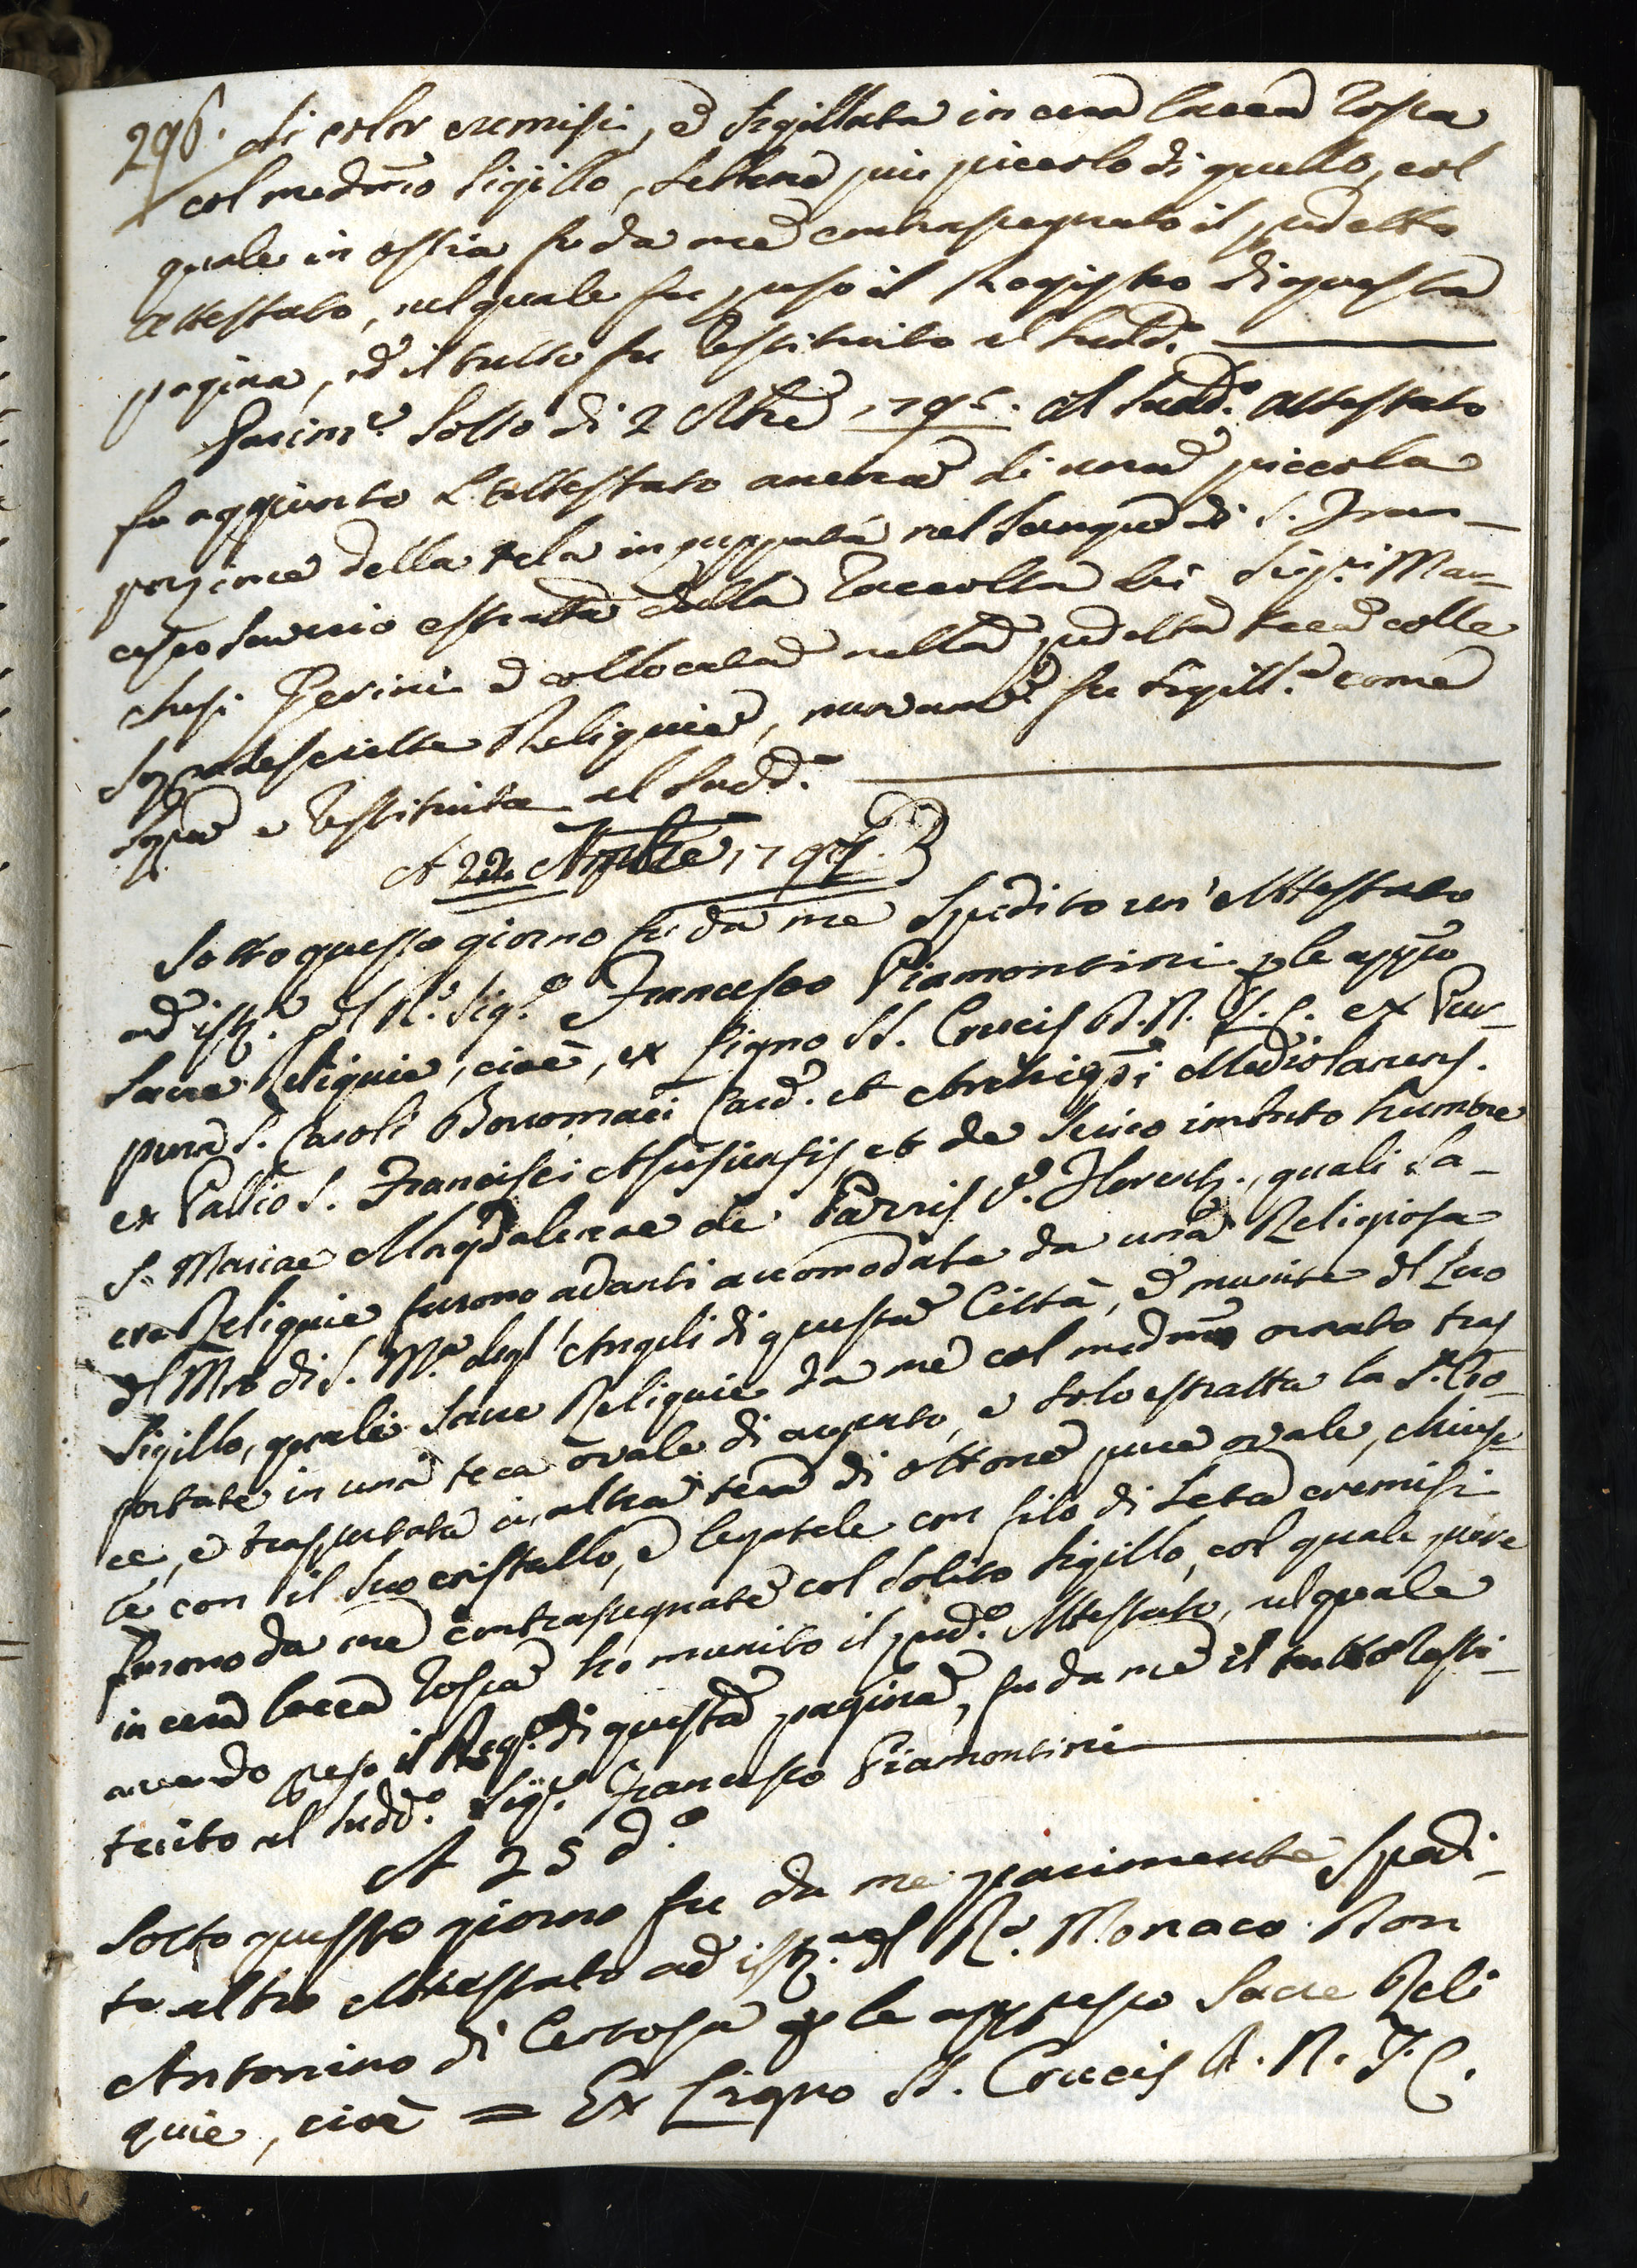 296. di color cremisi, e Sigillata in cera lacca rossa
col medmo Sigillo, sebbene piu piccolo di quello, col
quale in ostia fu da me contrasegnato il predetto
Attestato, nel quale fu preso il Registro di questa
pagina, ed il tutto fu restituito al Sudd.o
Parim.e Sotto di 2 Abre 1795. al Sudd.o attestato
fu aggiunto l'Attestato ancora di una piccola
porzione della tela inzuppata nel Sangue di S. Fran-
cesco Saverio estratta dalla raccolta dei Sig.ri Mar-
chesi Gerini e collocata nella predetta teca colle
Sopradescritte Reliquie, nuovam.e fu Sigill.a come
Sopra e restituita al Sudd.o
A 22 1795.
Sotto questo giorno fu da me Spedito un'Attestato
ad istz.a del R.o Sig.e Francesco Piamontini p le appso
Sacre Reliquie, cioè, ex Ligno SS. Crucis D.N. J.C. ex Pur-
pura S. Caroli Borromaei Card. et Archiepi Mediolanens.
ex Pallio S. Francisci Assisiensis, et de Succo imbuto
S. Mariae Magdalenae de Pazzis V. Florent., quali Sa-
cre Reliquie furono avanti accomodate da una Religiosa
del Mro di S. M.a degl'Angeli di questa Città, e munite del Suo
Sigillo, quali Sacre Reliquie da me col medmo ornato tras
portate in una teca ovale di argento, e solo estratta la S. Cro-
ce, e trasportata in altra teca di ottone pure ovale, chiuse
le con il Suo cristallo, e legatele con filo di Seta cremisi
furono da me contrasegnate col Solito Sigillo, col quale pure
in cera lacca rossa ho munito il pred.o Attestato, nel quale
avendo preso il Reg.o di questa pagina, fu da me il tutto resti-
tuito al Sudd.o Sig.e Francesco Piamontini
A 25 d.o
Sotto questo giorno fu da me parimente Spedi-
to altro Attestato ad istz.a del R.o Monaco Don
Antonino di Certosa p le appresso Sacre Reli
quie, cioè = Ex Ligno SS. Crucis D. N. J. C.